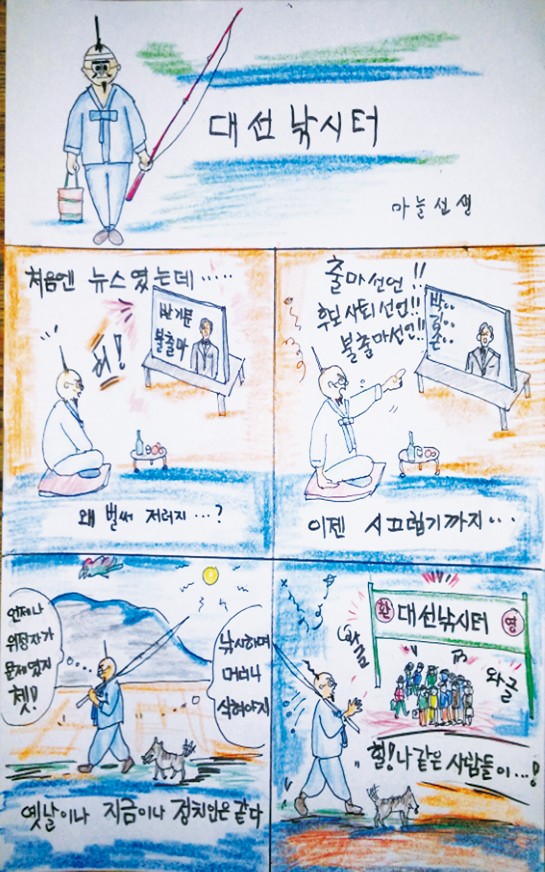 대선낚시터
마늘선생
처음엔 뉴스였는데·····
반기문
불출마
허!
왜 벌써 저러지···?
출마선언!!
후보사퇴선언!!
불출마선언!!
박··
김··
손··
이젠 시끄럽기까지···
언제나
위정자가
문제였지
쳇!
낚시하며
머리나
식혀야지
옛날이나 지금이나 정치인은 같다
환 대선낚시터 영
와글
와글
헐! 나같은 사람들이···!